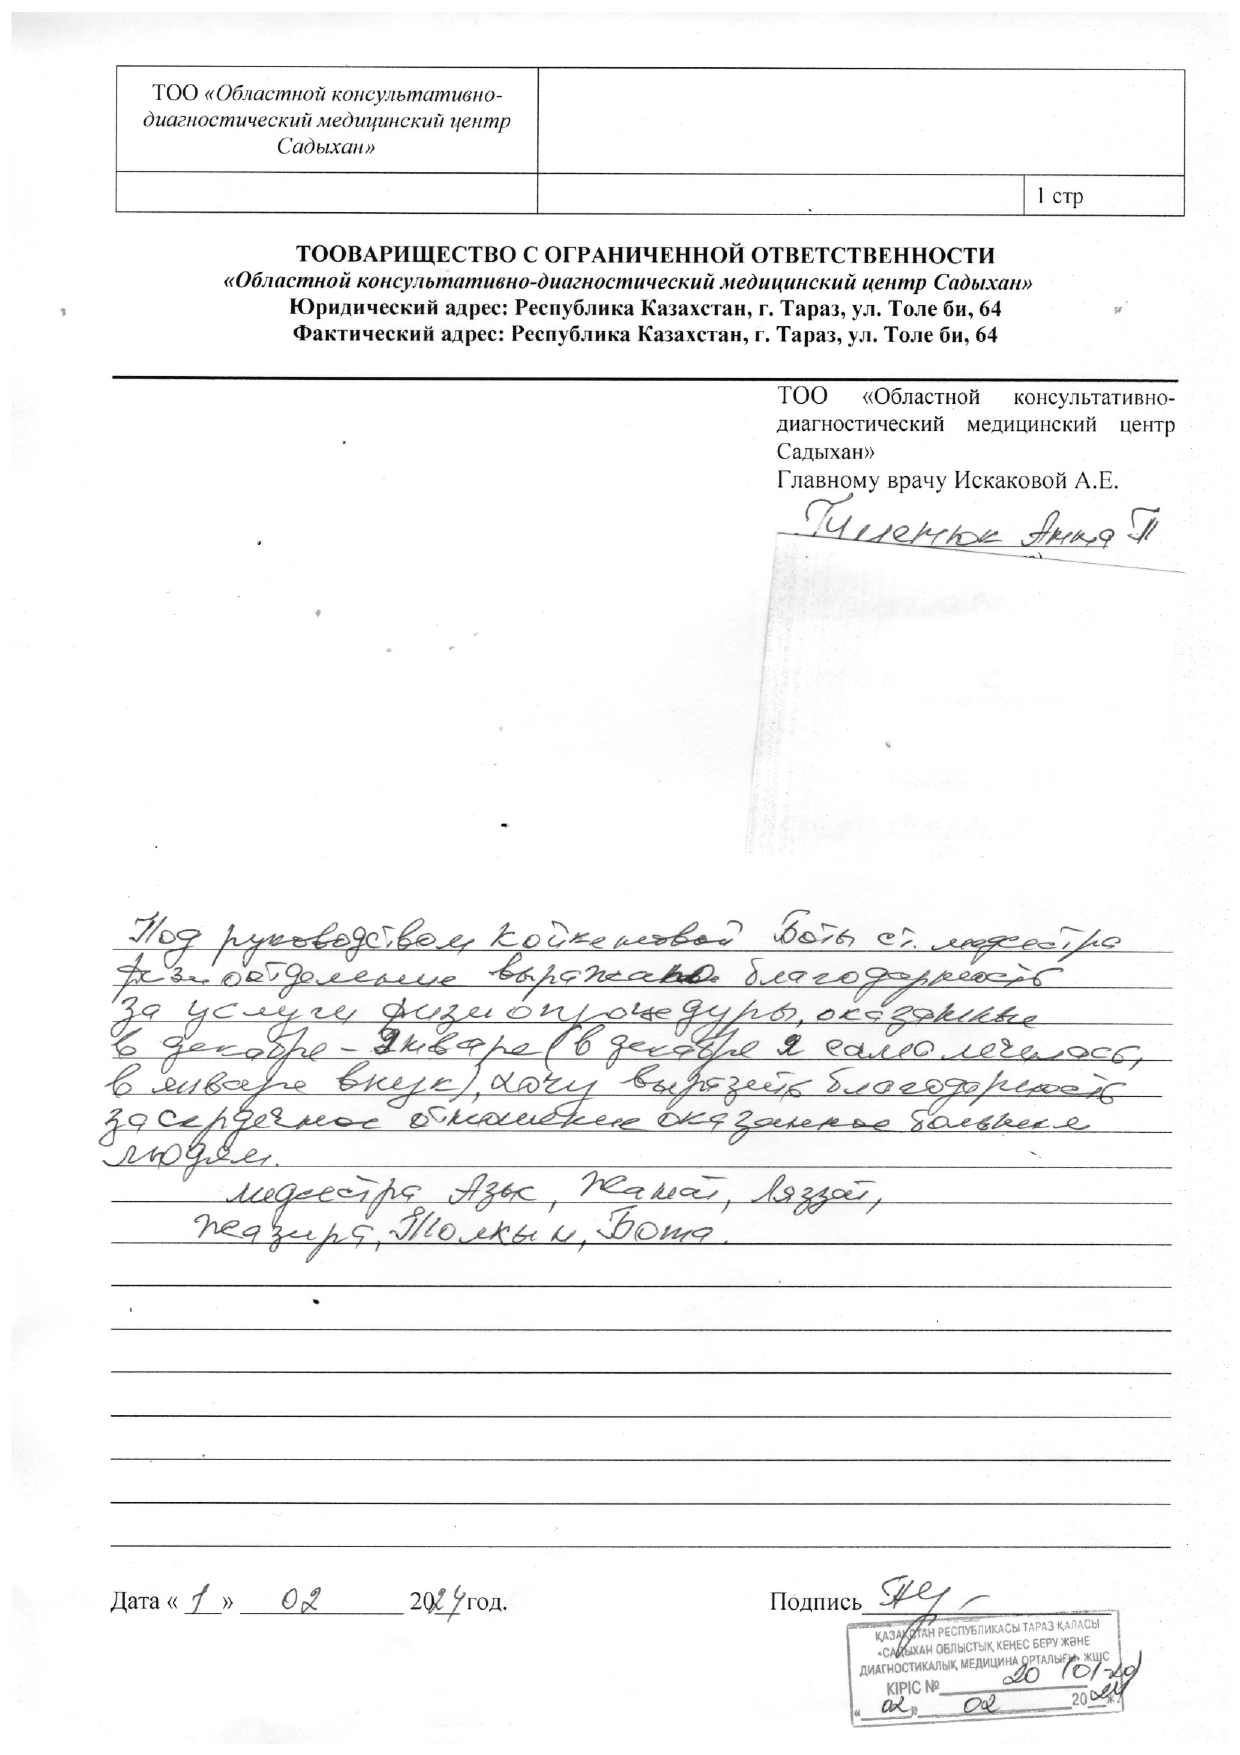 ТОО «Областной консультативно-
диагностический медицинский центр
Садыхан»
1 стр
ТООВАРИЩЕСТВО С ОГРАНИЧЕННОЙ ОТВЕТСТВЕННОСТИ
«Областной консультативно-диагностический медицинский центр Садыхан»
Юридический адрес: Республика Казахстан, г. Тараз, ул. Толе би, 64
Фактический адрес: Республика Казахстан, г. Тараз, ул. Толе би, 64
ТОО «Областной консультативно-
диагностический медицинский центр
Садыхан»
Главному врачу Искаковой А.Е.
Анна П
Под руководством Койкеловой Боты ст. медсестра
физиоотделение выражаю благодарность
за услуги физиопроцедуры, оказанные
в декабре - январе (в декабре я сама лечилась,
в январе внук), хочу выразить благодарность
за сердечное отношение оказанное больным
людям.
медсестра Азык, Жанат, Ляззат,
Жазира, Толкын, Бота.
Дата « 1 » 02 2024 год.
Подпись
ҚАЗАҚСТАН РЕСПУБЛИКАСЫ ТАРАЗ ҚАЛАСЫ
«САДЫХАН ОБЛЫСТЫҚ КЕҢЕС БЕРУ ЖӘНЕ
ДИАГНОСТИКАЛЫҚ МЕДИЦИНА ОРТАЛЫҒЫ» ЖШС
КІРІС № 20 (01-20)
«02» 02 2024 ж.